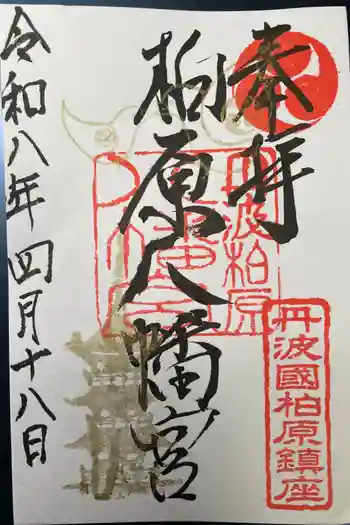 奉拝
丹波柏原
八幡宮
丹波國柏原鎮座
柏原八幡宮
令和八年四月十八日